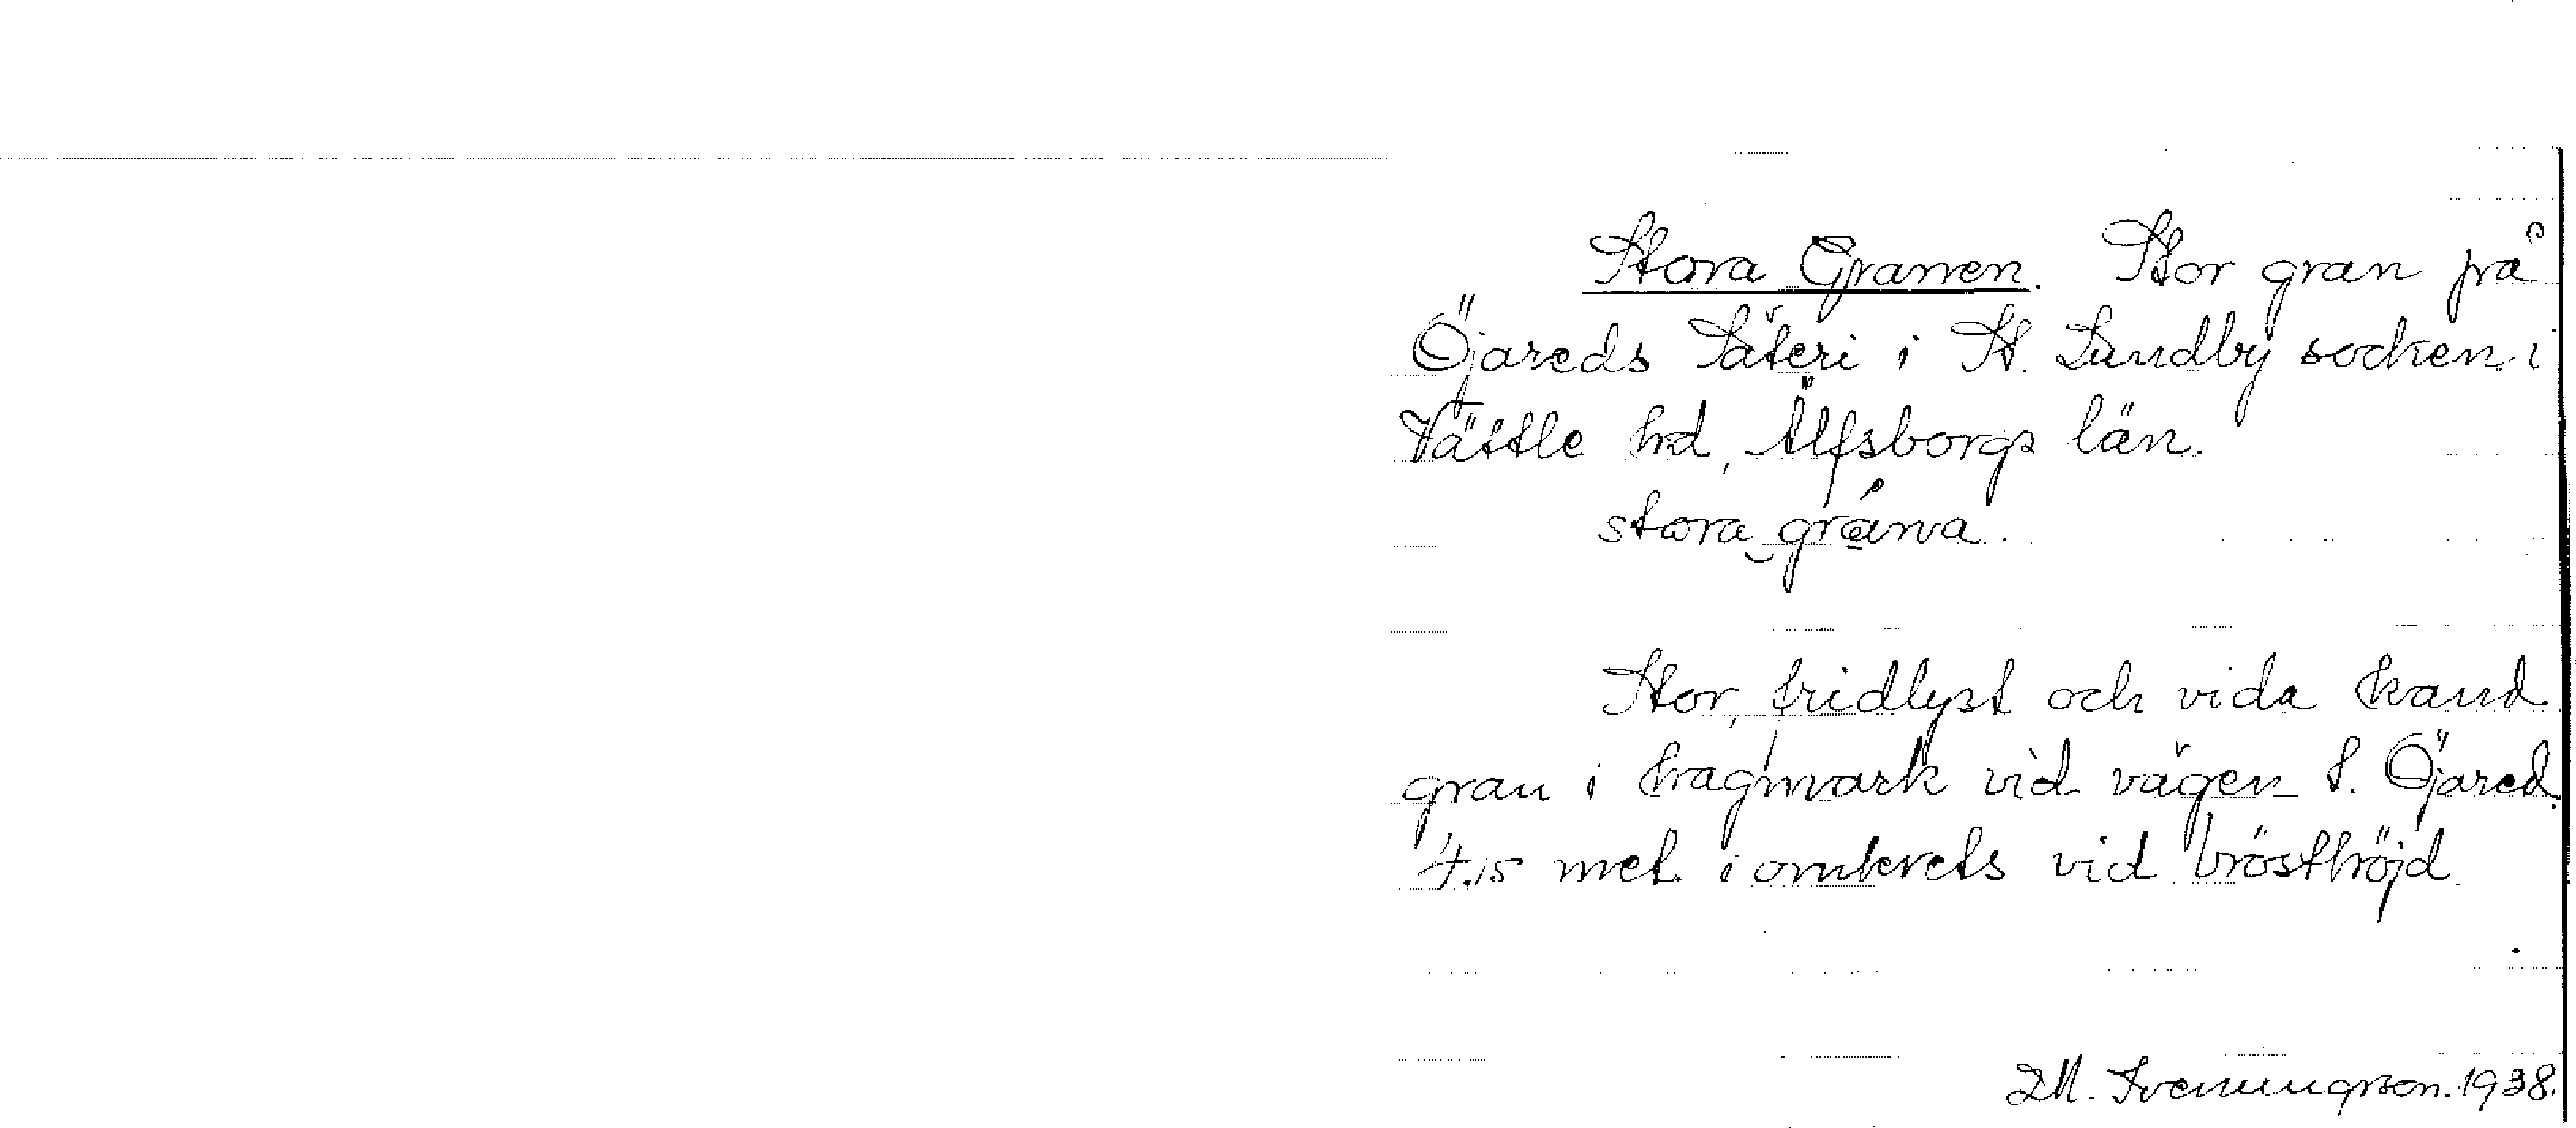 Stora Granen. Stor gran på
Öjareds Säteri i St. Lundby socken i
Vättle hd, Älfsborgs län.
stora grána.
Stor, fridlyst och vida känd
gran i hagmark vid vägen S. Öjared.
4.15 met. i omkrets vid brösthöjd
M. Svenungson. 1938.